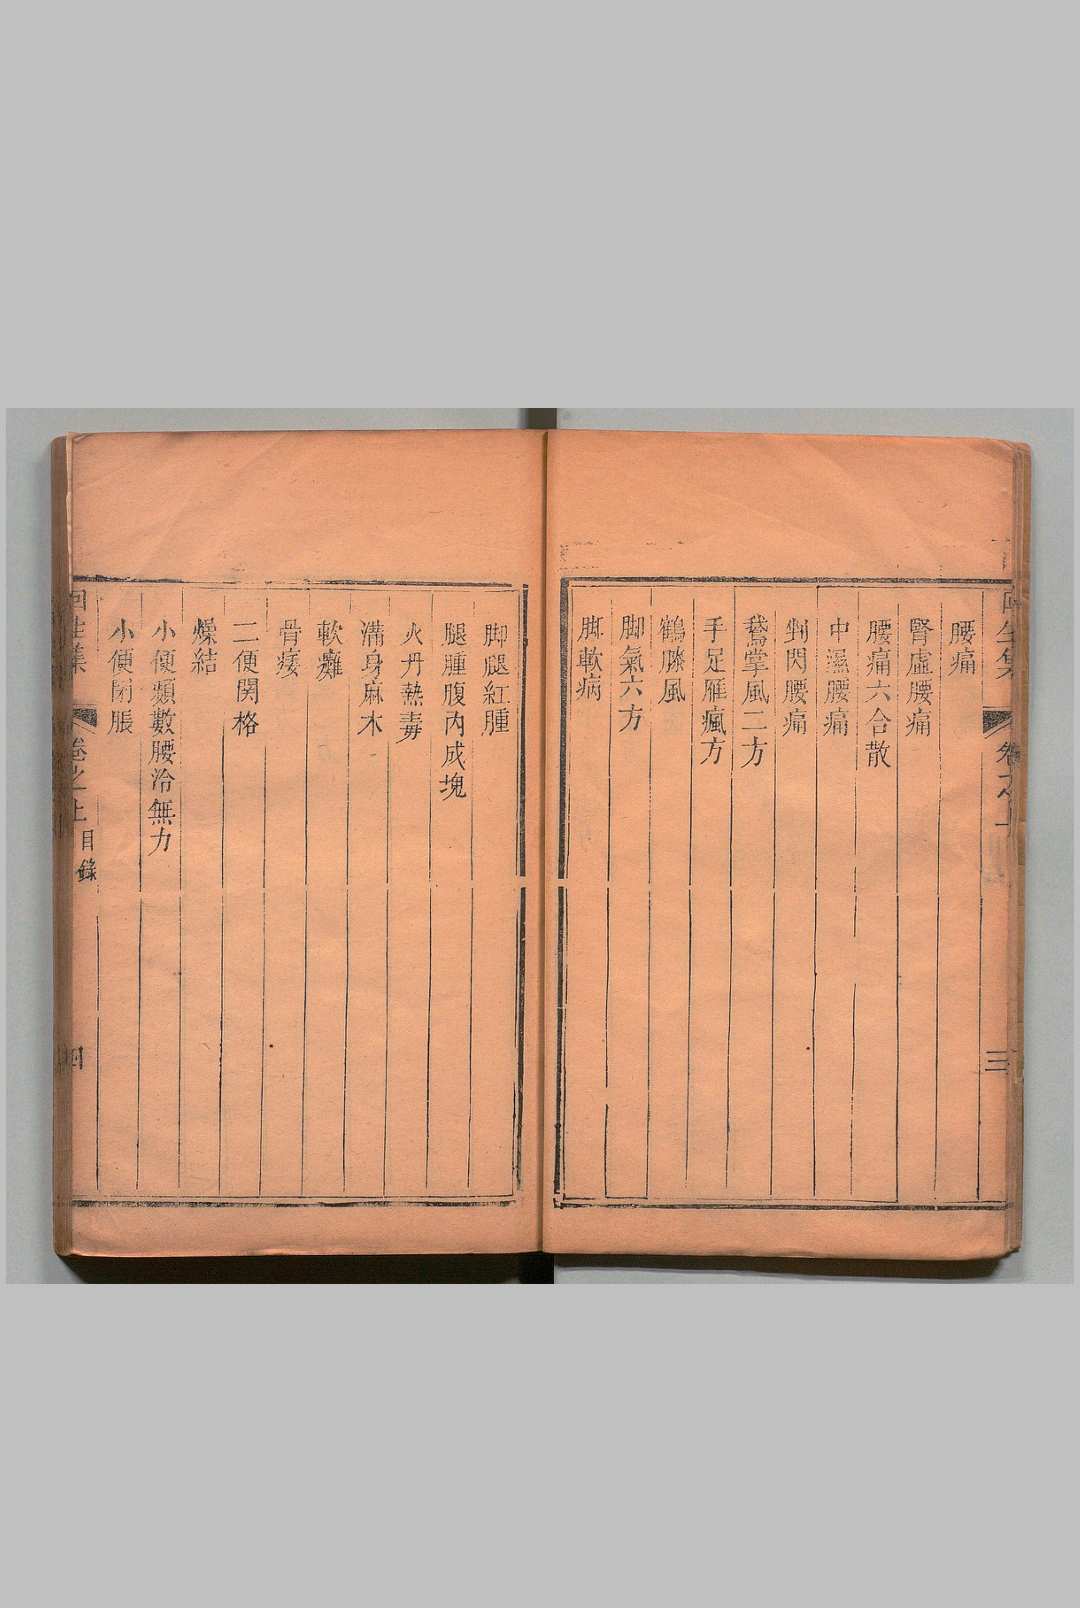 腰痛
腎虛腰痛
腰痛六合散
中濕腰痛
閃腰痛
鵞掌風二方
手足雁瘋方
鶴膝風
脚氣六方
脚軟病
三
脚腿紅腫
腿腫腹內成塊
火丹熱毒
滿身麻木
軟癱
骨痿
二便関格
燥結
小便頻數腰冷無力
小便閉脹
回生集
卷之上
目錄
四